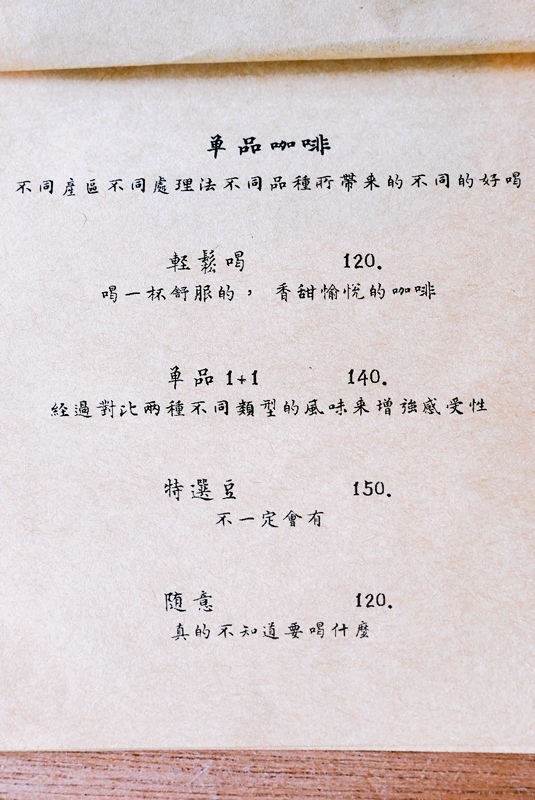 单品咖啡
不同產區不同處理法不同品種所帶来的不同的好喝
輕鬆喝 120.
喝一杯舒服的，香甜愉悅的咖啡
单品1+1 140.
經過對比兩種不同類型的風味来增強感受性
特選豆 150.
不一定會有
随意 120.
真的不知道要喝什麼